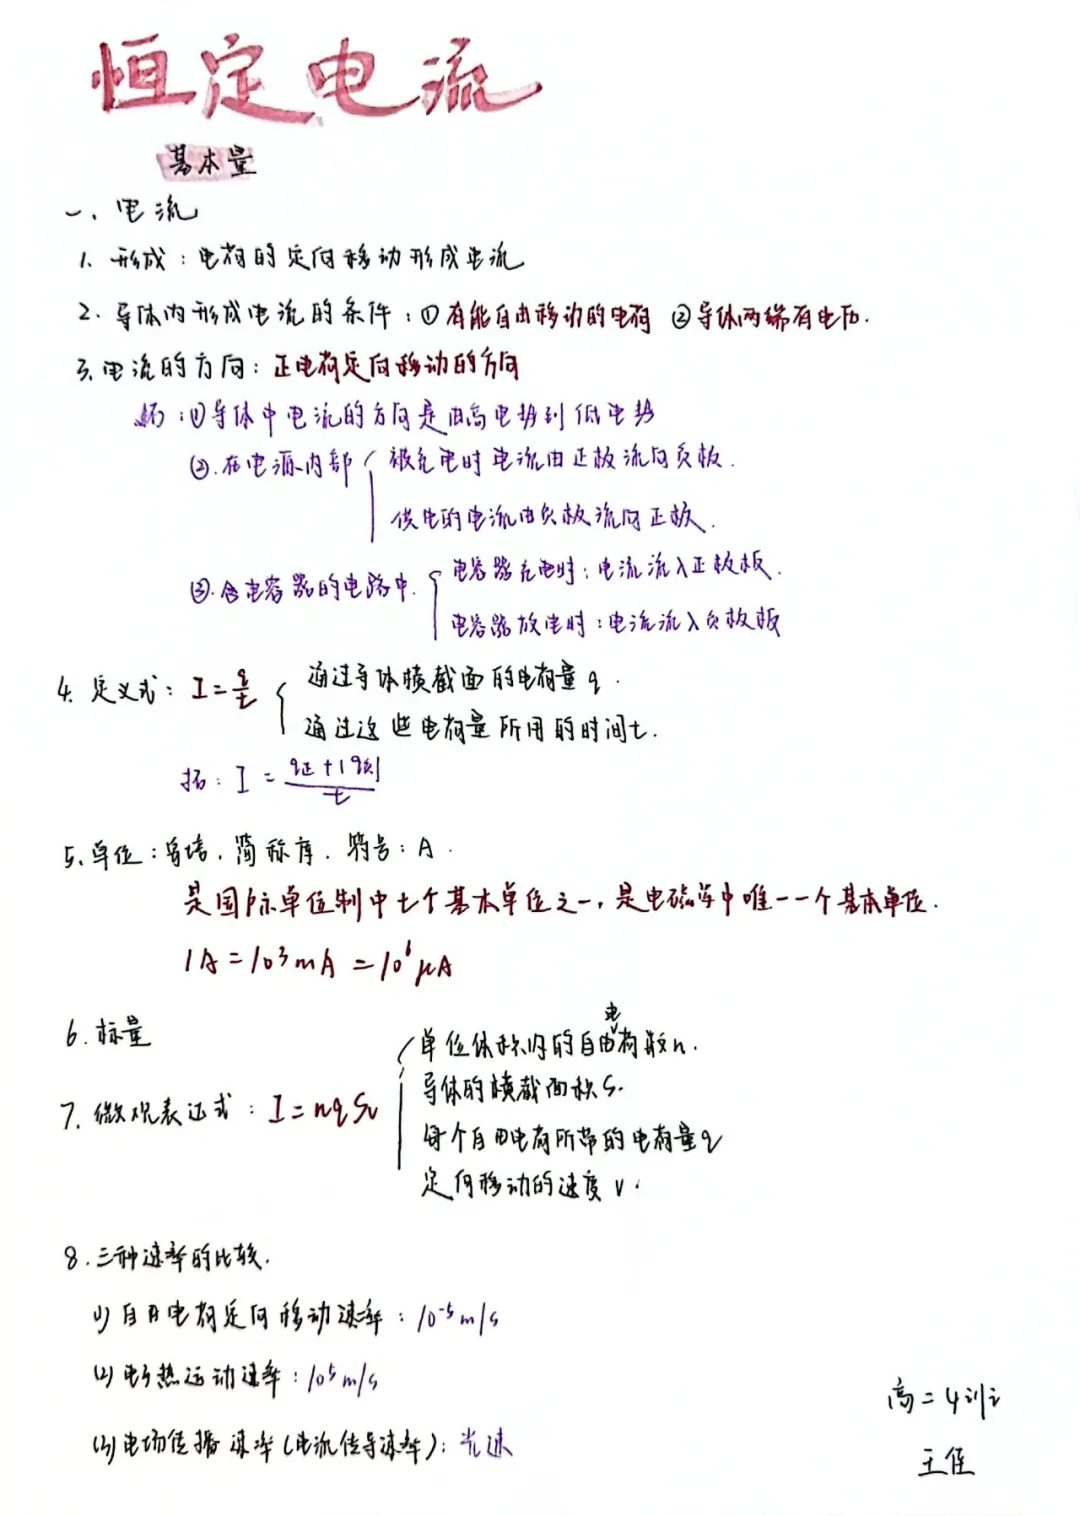 恒定电流
基本量
一、电流
1. 形成：电荷的定向移动形成电流
2. 导体内形成电流的条件：①有能自由移动的电荷 ②导体两端有电压.
3. 电流的方向：正电荷定向移动的方向
拓：①导体中电流的方向是由高电势到低电势
②.在电源内部 被充电时电流由正极流向负极.
供电的电流由负极流向正极.
③.含电容器的电路中. 电容器充电时：电流流入正极板.
电容器放电时：电流流入负极板
4. 定义式：I=q/t 通过导体横截面的电荷量q.
通过这些电荷量所用的时间t.
拓：I=(q正+|q负|)/t
5. 单位：安培，简称安. 符号：A.
是国际单位制中七个基本单位之一，是电磁学中唯一一个基本单位.
1A=10³mA=10⁶μA
6. 标量
7. 微观表达式：I=nqSv 单位体积内的自由电荷数n.
导体的横截面积S.
每个自由电荷所带的电荷量q
定向移动的速度v.
8. 三种速率的比较.
(1) 自由电荷定向移动速率：10⁻⁵m/s
(2) 电子热运动速率：10⁵m/s
(3) 电场传播速率(电流传导速率)：光速
高二4训
王佳